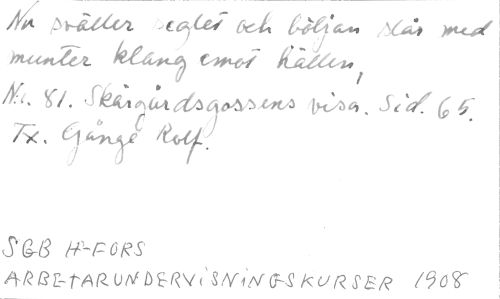 Nu sväller seglet och böljan slår med
munter klang emot hällen,
No. 81. Skärgårdsgossens visa. Sid. 65.
Tx. Gånge Rolf.
SGB H-FORS
ARBETARUNDERVISNINGSKURSER 1908